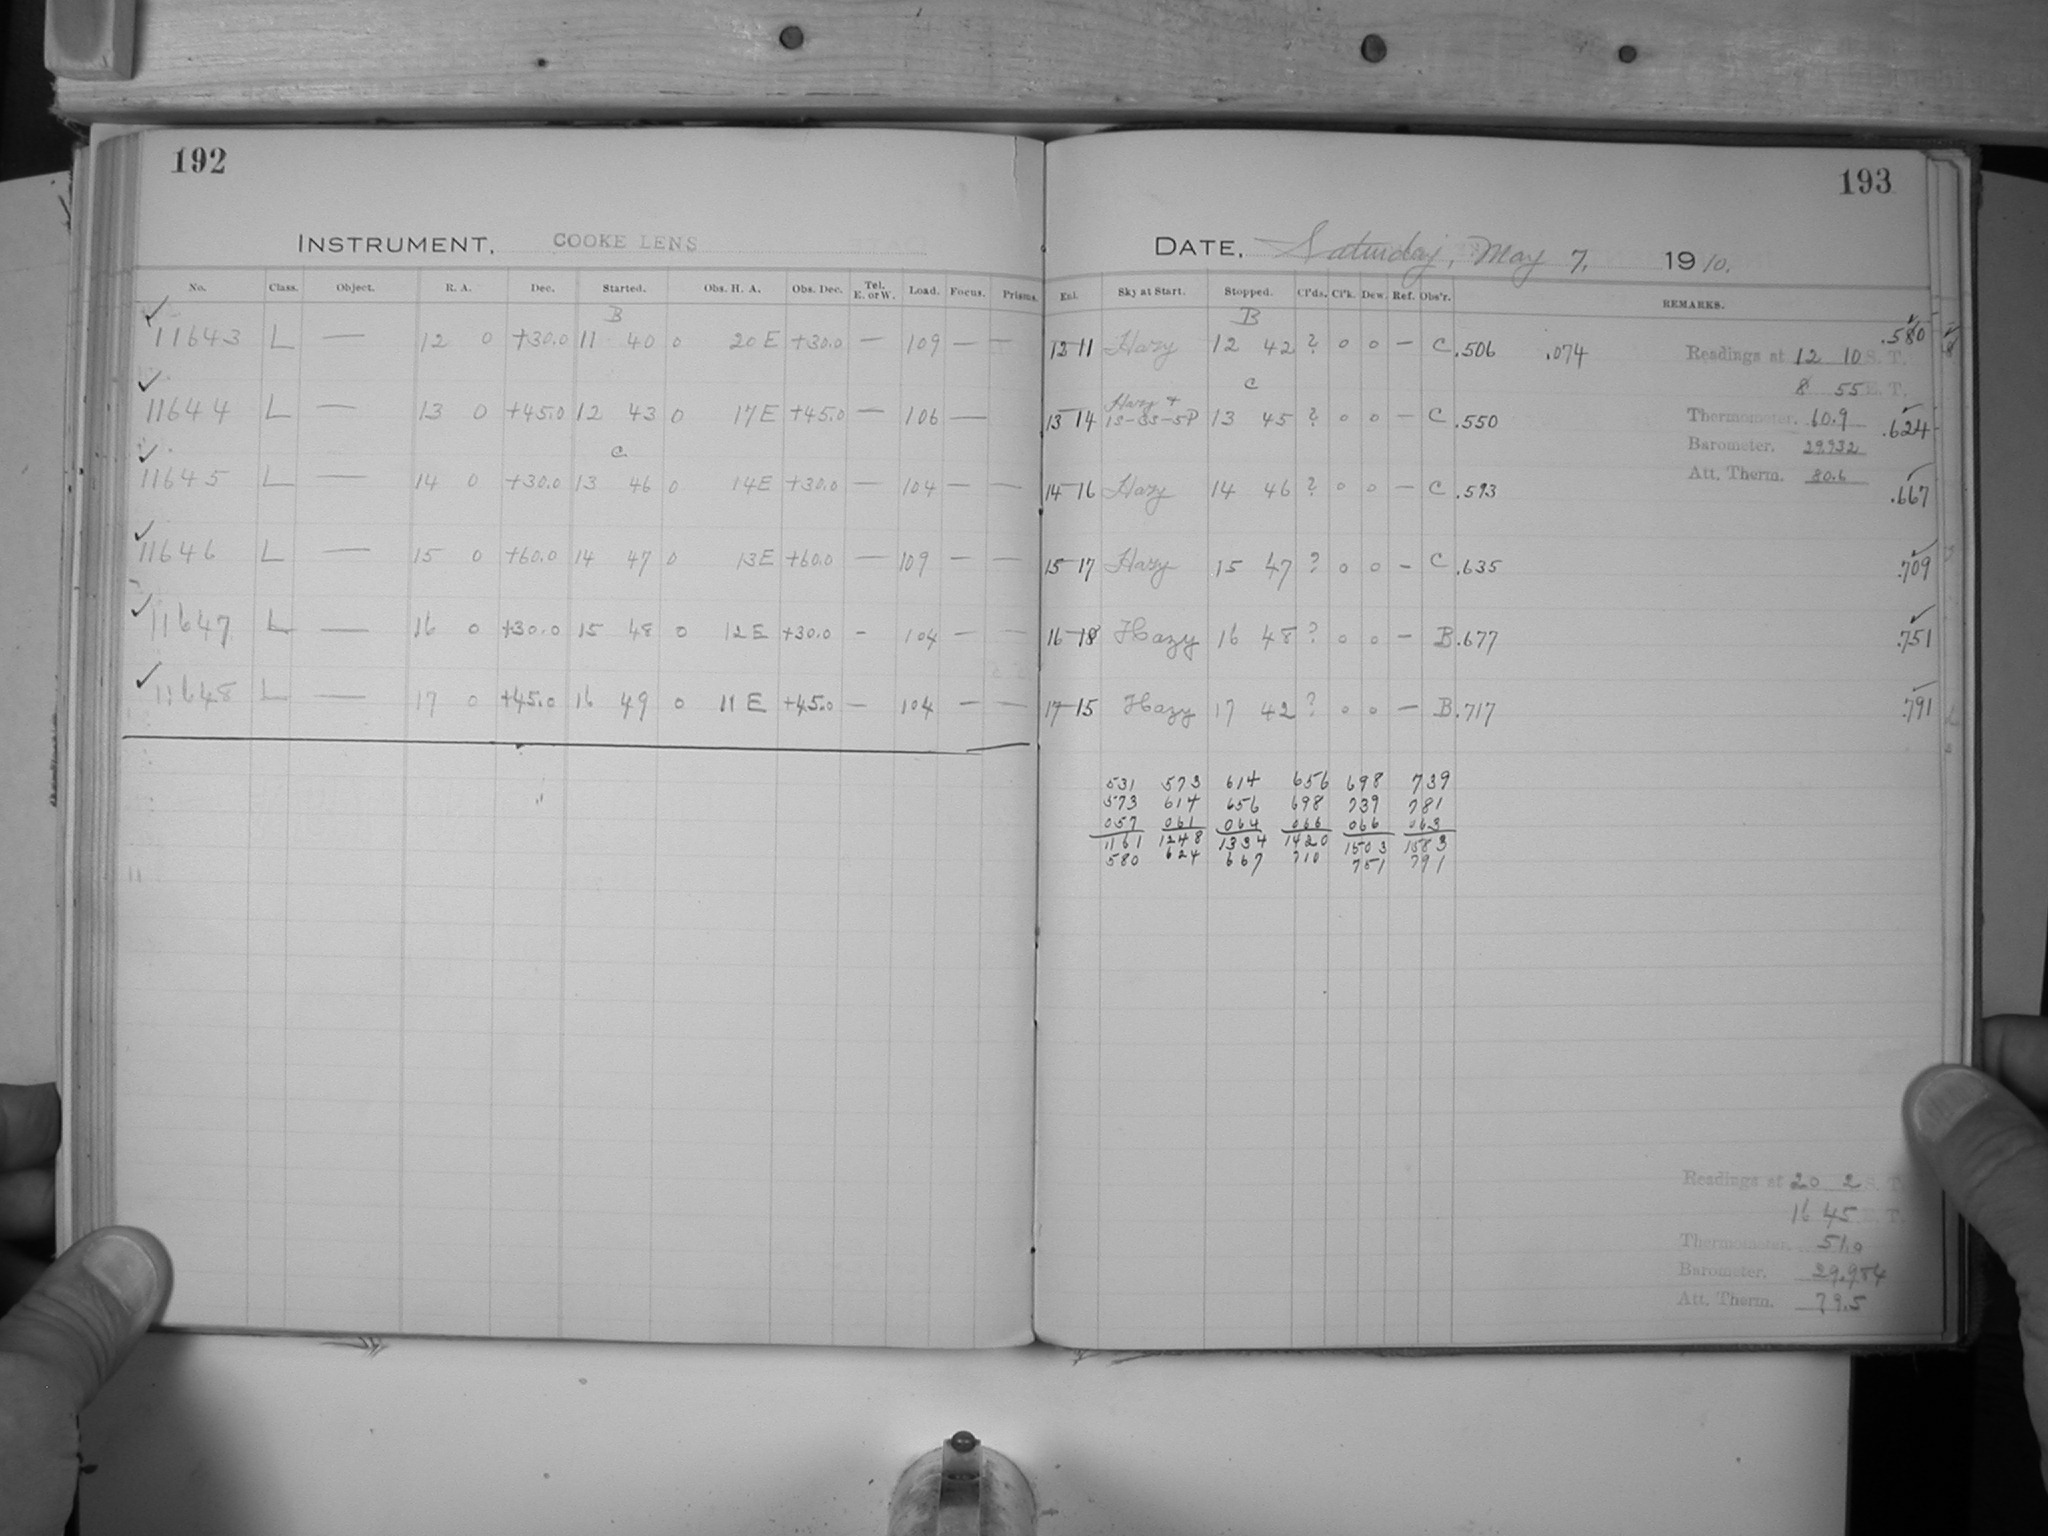 192
INSTRUMENT, COOKE LENS
No. Class. Object. R. A. Dec. Started. Obs. H. A. Obs. Dec. Tel. E. or W. Load. Focus. Prisms.
B
✓ 11643 L — 12 0 +30.0 11 40 0 20 E +30.0 — 109 — —
✓ 11644 L — 13 0 +45.0 12 43 0 17 E +45.0 — 106 —
C
✓ 11645 L — 14 0 +30.0 13 46 0 14 E +30.0 — 104 — —
✓ 11646 L — 15 0 +60.0 14 47 0 13 E +60.0 — 109 — —
✓ 11647 L — 16 0 +30.0 15 48 0 12 E +30.0 - 104 — —
✓ 11648 L — 17 0 +45.0 16 49 0 11 E +45.0 — 104 — —
193
DATE, Saturday, May 7, 1910.
Exl. Sky at Start. Stopped. Cl'ds. Cl'k. Dew. Ref. Obs'r. REMARKS.
B
12-11 Hazy 12 42 ? 0 0 — C .506 .074 .580
Readings at 12 10 S. T.
8 55 E. T.
C
13-14 Hazy + 1S-3S-5P 13 45 ? 0 0 — C .550 .624
Thermometer. 60.9
Barometer. 29.932
Att. Therm. 80.6
14-16 Hazy 14 46 ? 0 0 — C .593 .667
15-17 Hazy 15 47 ? 0 0 - C .635 .709
16-18 Hazy 16 48 ? 0 0 — B .677 .751
17-15 Hazy 17 42 ? 0 0 — B .717 .791
531 573 614 656 698 739
573 614 656 698 739 781
057 061 064 066 066 063
1161 1248 1334 1420 1503 1583
580 624 667 710 751 791
Readings at 20 2 S. T.
16 45 E. T.
Thermometer. 51.0
Barometer. 29.984
Att. Therm. 79.5